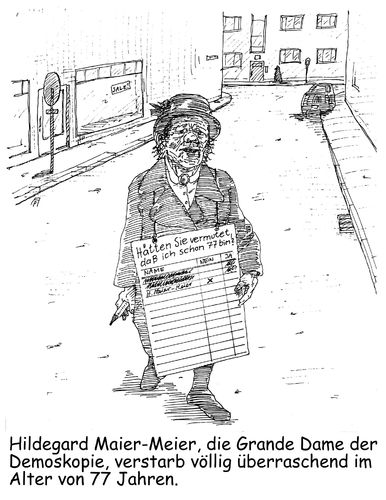 SALE
Hätten Sie vermutet,
daß ich schon 77 bin?
NAME NEIN JA
H. Maier-Meier X
Hildegard Maier-Meier, die Grande Dame der
Demoskopie, verstarb völlig überraschend im
Alter von 77 Jahren.